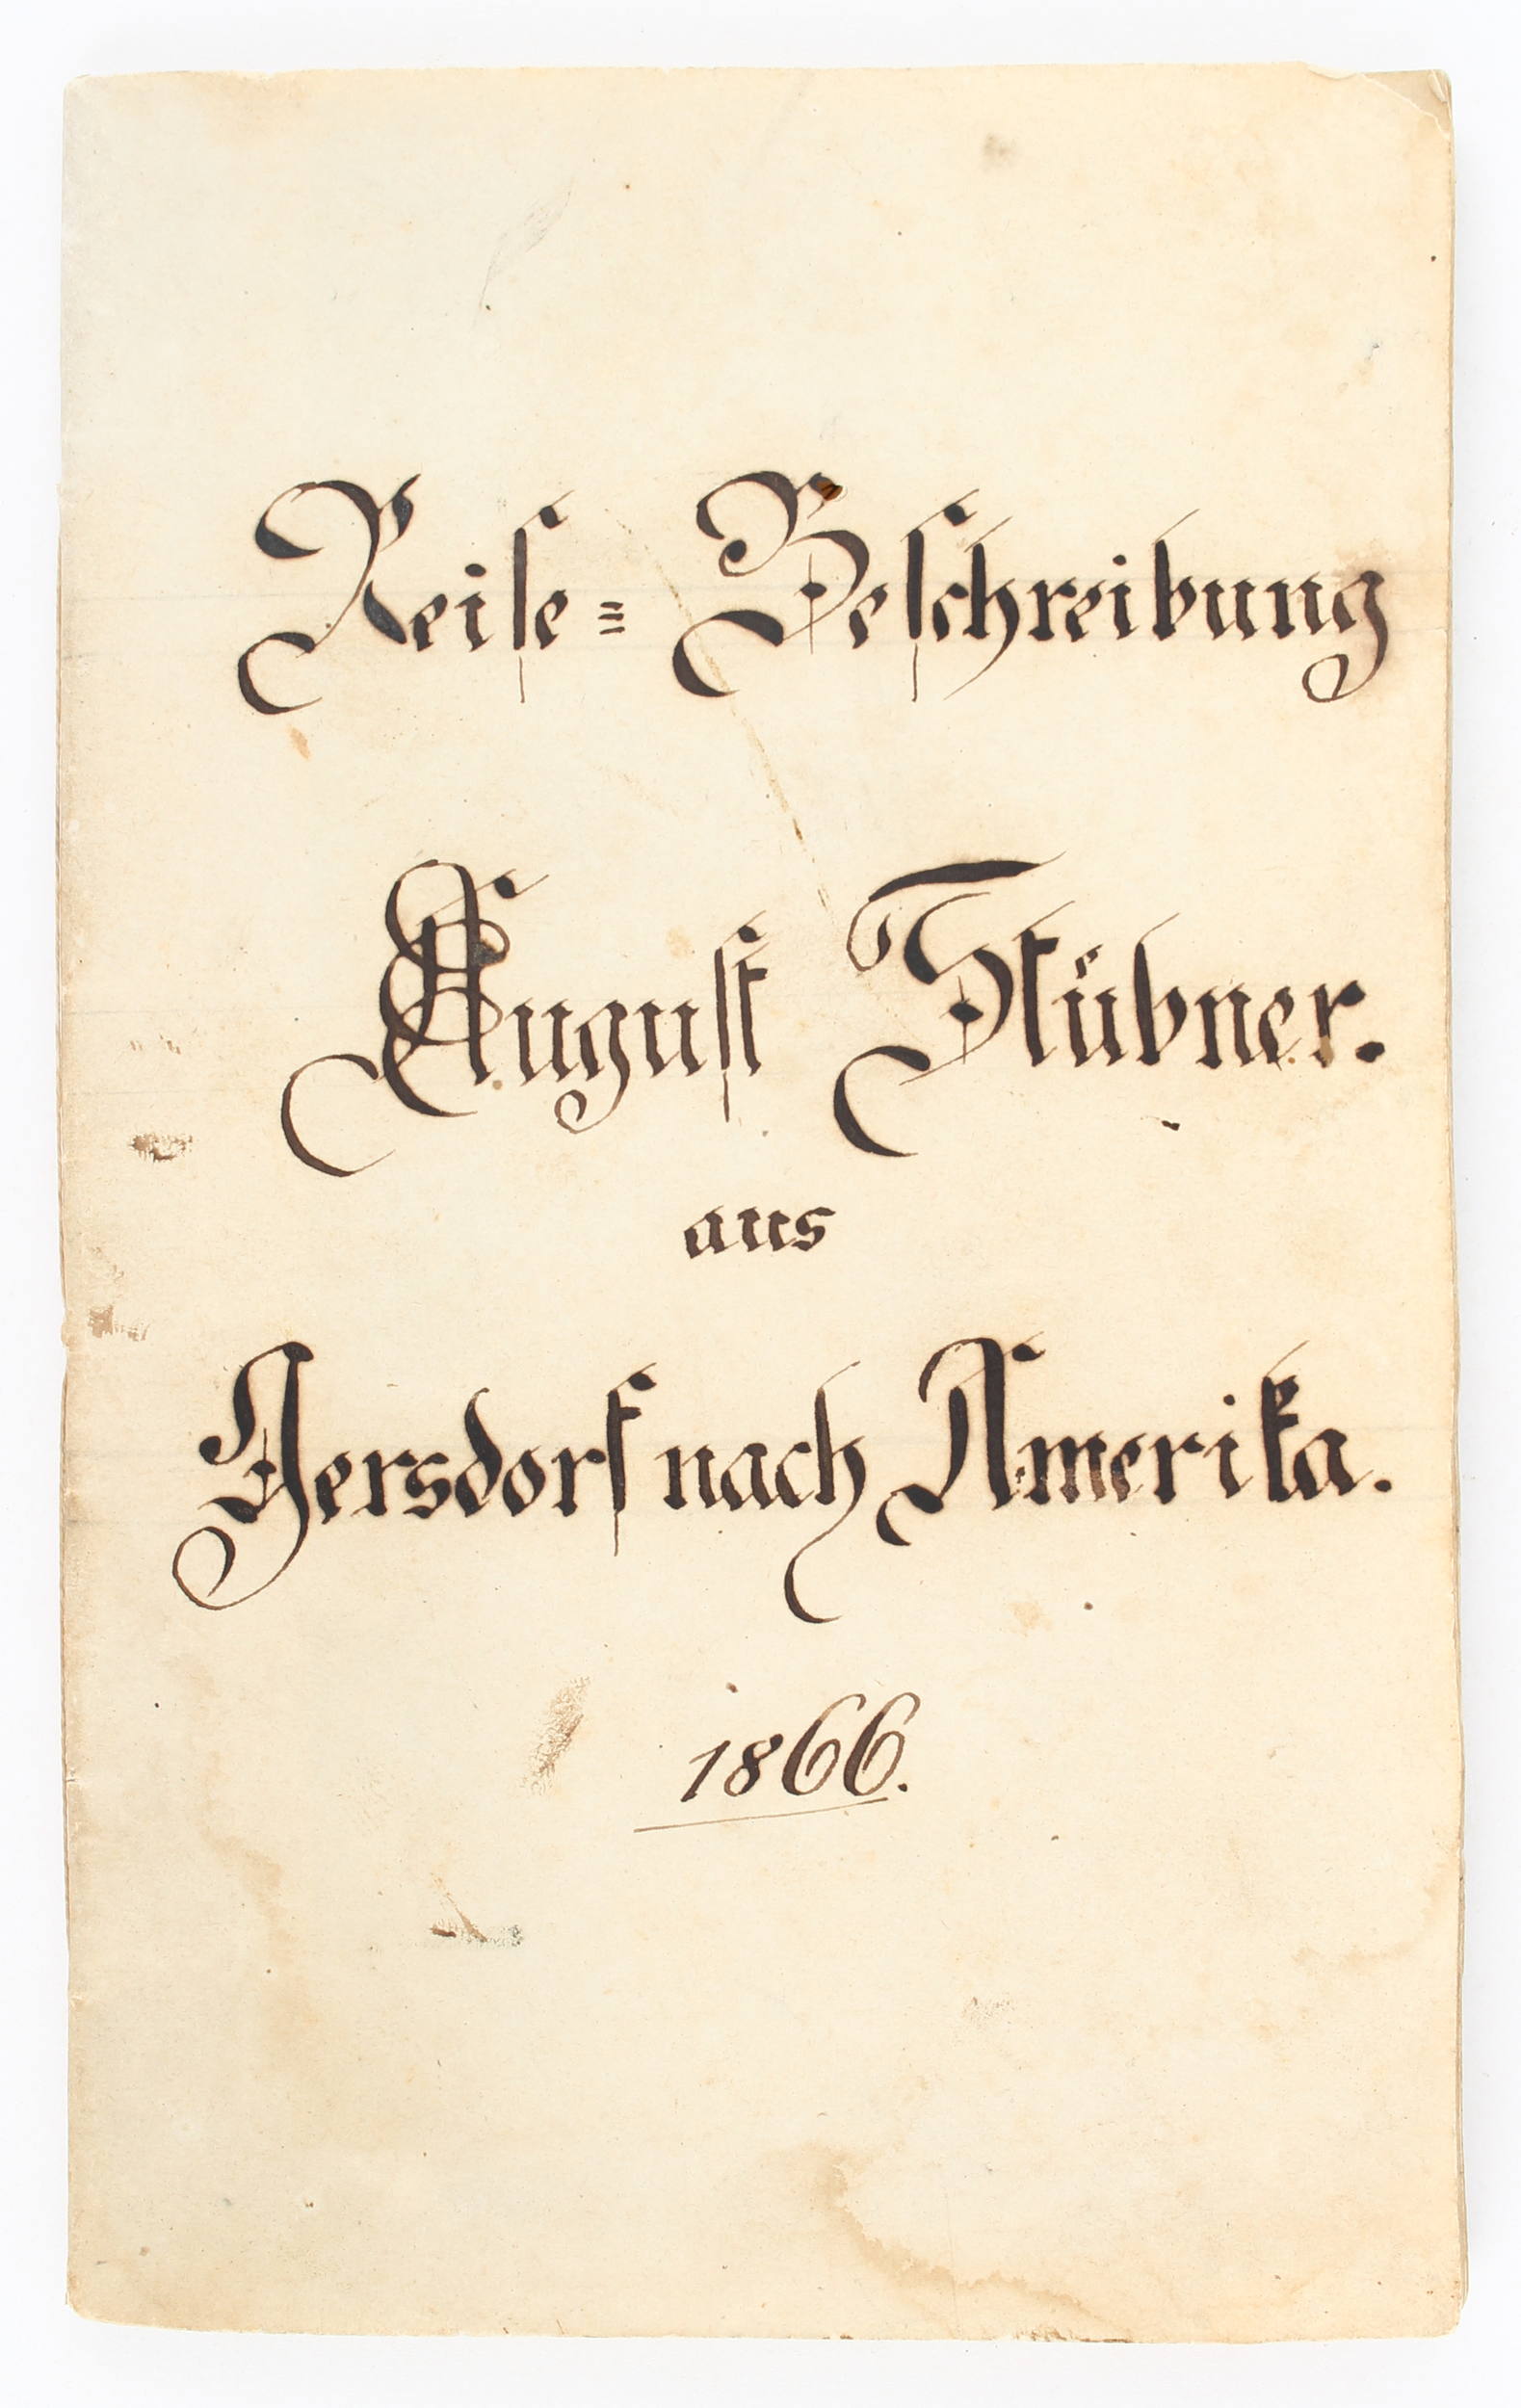 Reiſe= Beſchreibung
Auguſt Stübner.
aus
Gersdorf nach Amerika.
1866.